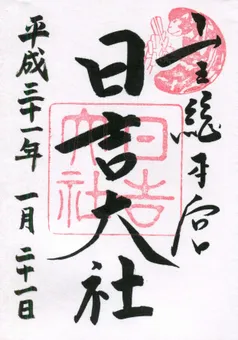 山王總本宮
日吉大社
平成三十一年 一月 二十一日
日吉大社